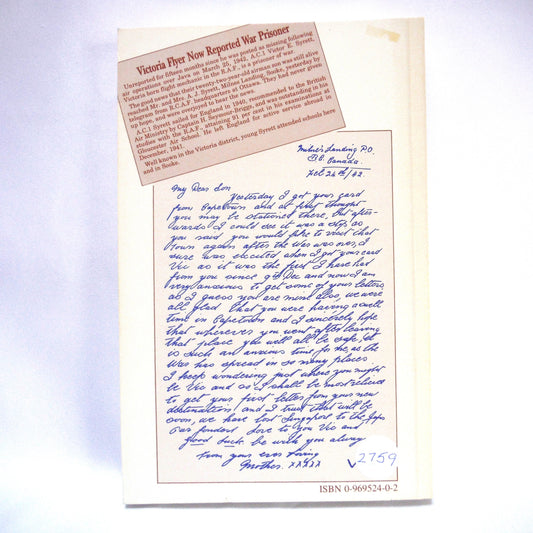 Victoria Flyer Now Reported War Prisoner
Unreported for fifteen months since he was posted as missing following
air operations over Java on March 25, 1942, A.C.1 Victor E. Syrett,
Victoria born flight mechanic in the R.A.F., is a prisoner of war.
The good news that their twenty-two-year-old airman son was still alive
reached Mr. and Mrs. A. J. Syrett, Milnes Landing, Sooke, yesterday by
telegram from R.C.A.F. headquarters at Ottawa. They had never given
up hope, and were overjoyed to hear the news.
A.C.1 Syrett sailed for England in 1940, recommended to the British
Air Ministry by Captain H. Seymour-Briggs, and was outstanding in his
studies with the R.A.F. attaining 91 per cent in his examinations at
Gloucester Air School. He left England for active service abroad in
December, 1941.
Well known in the Victoria district, young Syrett attended schools here
and in Sooke.
Milne's Landing P.O.
B.C. Canada.
Feb 26th/42.
My Dear Son
Yesterday I got your card
from Capetown and at first thought
you may be stationed there, but after-
wards I could see it was a stop as
you said you would like to visit that
town again after the War was over, I
sure was excited when I got your card
Vic as it was the first I have had
from you since 9th Dec and now I am
very anxious to get some of your letters
as I guess you are most also, we were
all glad that you were having a swell
time in Capetown and I sincerely hope
that wherever you went after leaving
that place you will all be safe, it
is such an anxious time for me, as the
War has spread in so many places
I keep wondering just where you might
be Vic and so I shall be most relieved
to get your first letter from your new
destination and I trust that will be
soon, we have lost Singapore to the Japs
fondest love to you Vic and
Good Luck be with you always
from your ever loving
Mother. xxxxx
2759
ISBN 0-969524-0-2